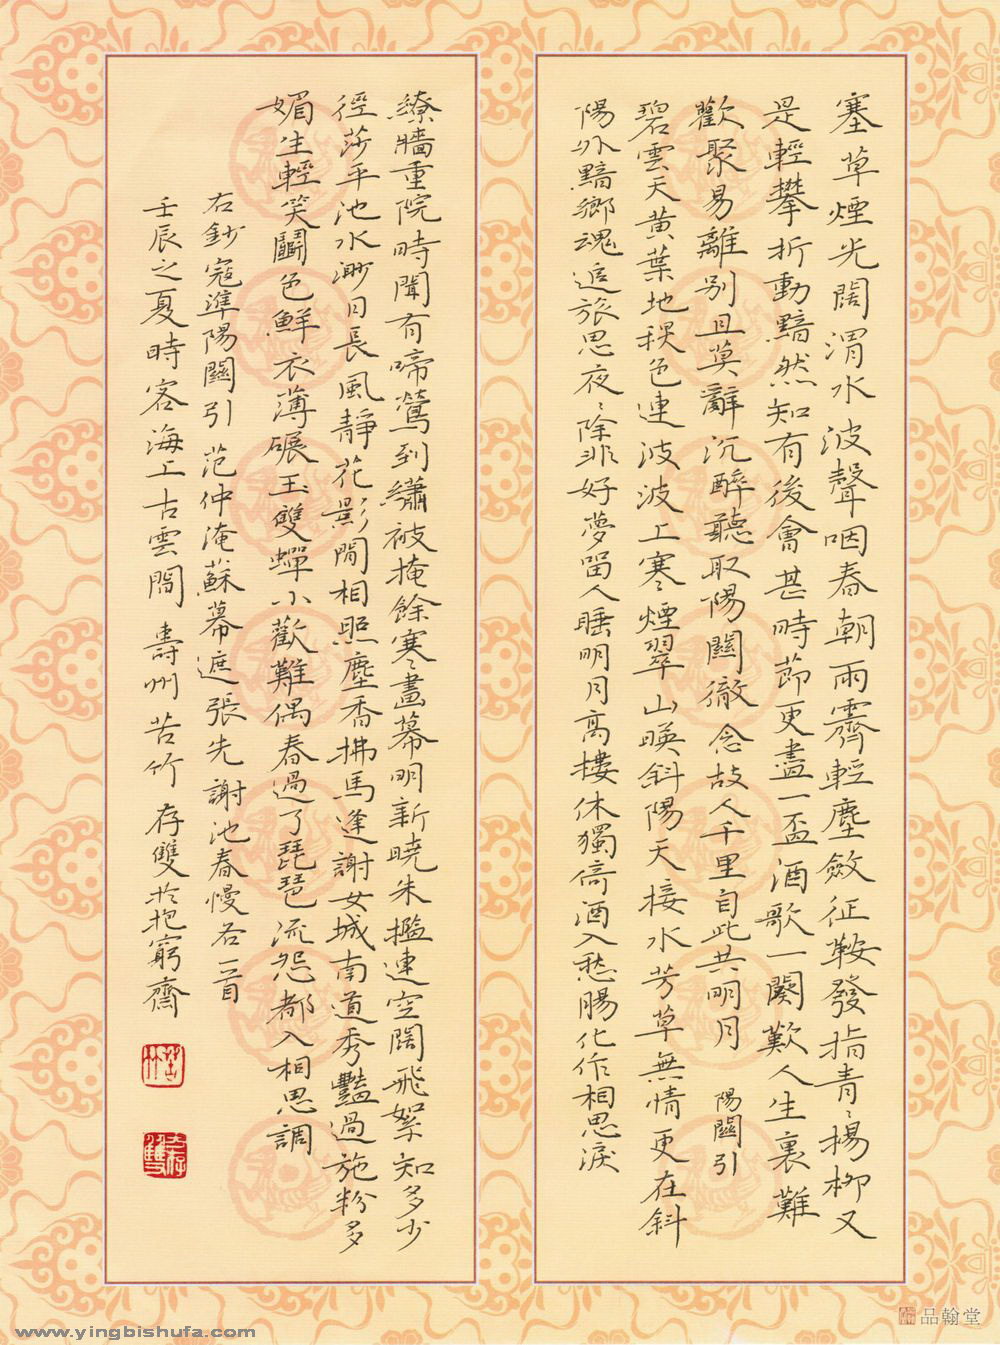 塞草煙光闊渭水波聲咽春朝雨霽輕塵斂征鞍發指青〻楊柳又
是輕攀折動黯然知有後會甚時節更盡一盃酒歌一闋歎人生裏難
歡聚易離別且莫辭沉醉聽取陽關徹念故人千里自此共明月 陽關引
碧雲天黃葉地秋色連波波上寒〻煙翠山暎斜陽天接水芳草無情更在斜
陽外黯鄉魂追旅思夜〻除非好夢留人睡明月高樓休獨倚酒入愁腸化作相思淚
繚牆重院時聞有啼鶯到繡被掩餘寒〻畫幕明新曉朱檻連空闊飛絮知多少
徑莎平池水渺日長風靜花影閒相照塵香拂馬逢謝女城南道秀豔過施粉多
媚生輕笑鬭色鮮衣薄碾玉雙蟬小歡難偶春過了琵琶流怨都入相思調
右鈔寇準陽關引 范仲淹蘇幕遮張先謝池春慢各一首
壬辰之夏時客海上古雲間 壽州 苦竹 存雙於抱窮齋
苦竹
存雙
品翰堂
www.yingbishufa.com